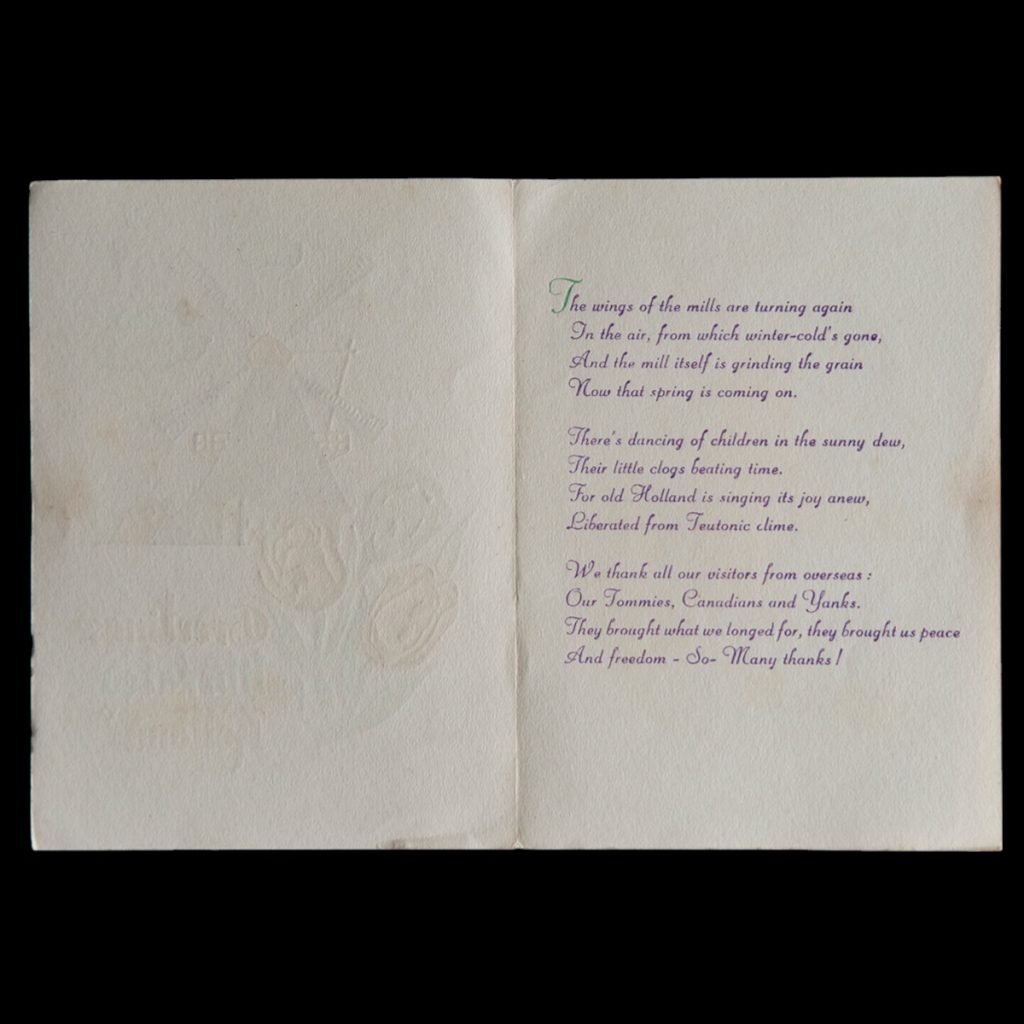 The wings of the mills are turning again
In the air, from which winter-cold's gone,
And the mill itself is grinding the grain
Now that spring is coming on.
There's dancing of children in the sunny dew,
Their little clogs beating time.
For old Holland is singing its joy anew,
Liberated from Teutonic clime.
We thank all our visitors from overseas :
Our Tommies, Canadians and Yanks.
They brought what we longed for, they brought us peace
And freedom - So- Many thanks !